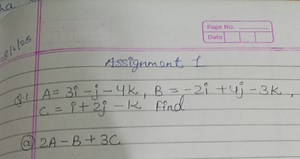 Page No.
Date
Assignment 1
Q.1 A = 3i - j - 4k, B = -2i + 4j - 3k,
C = i + 2j - k Find
(a) 2A - B + 3C